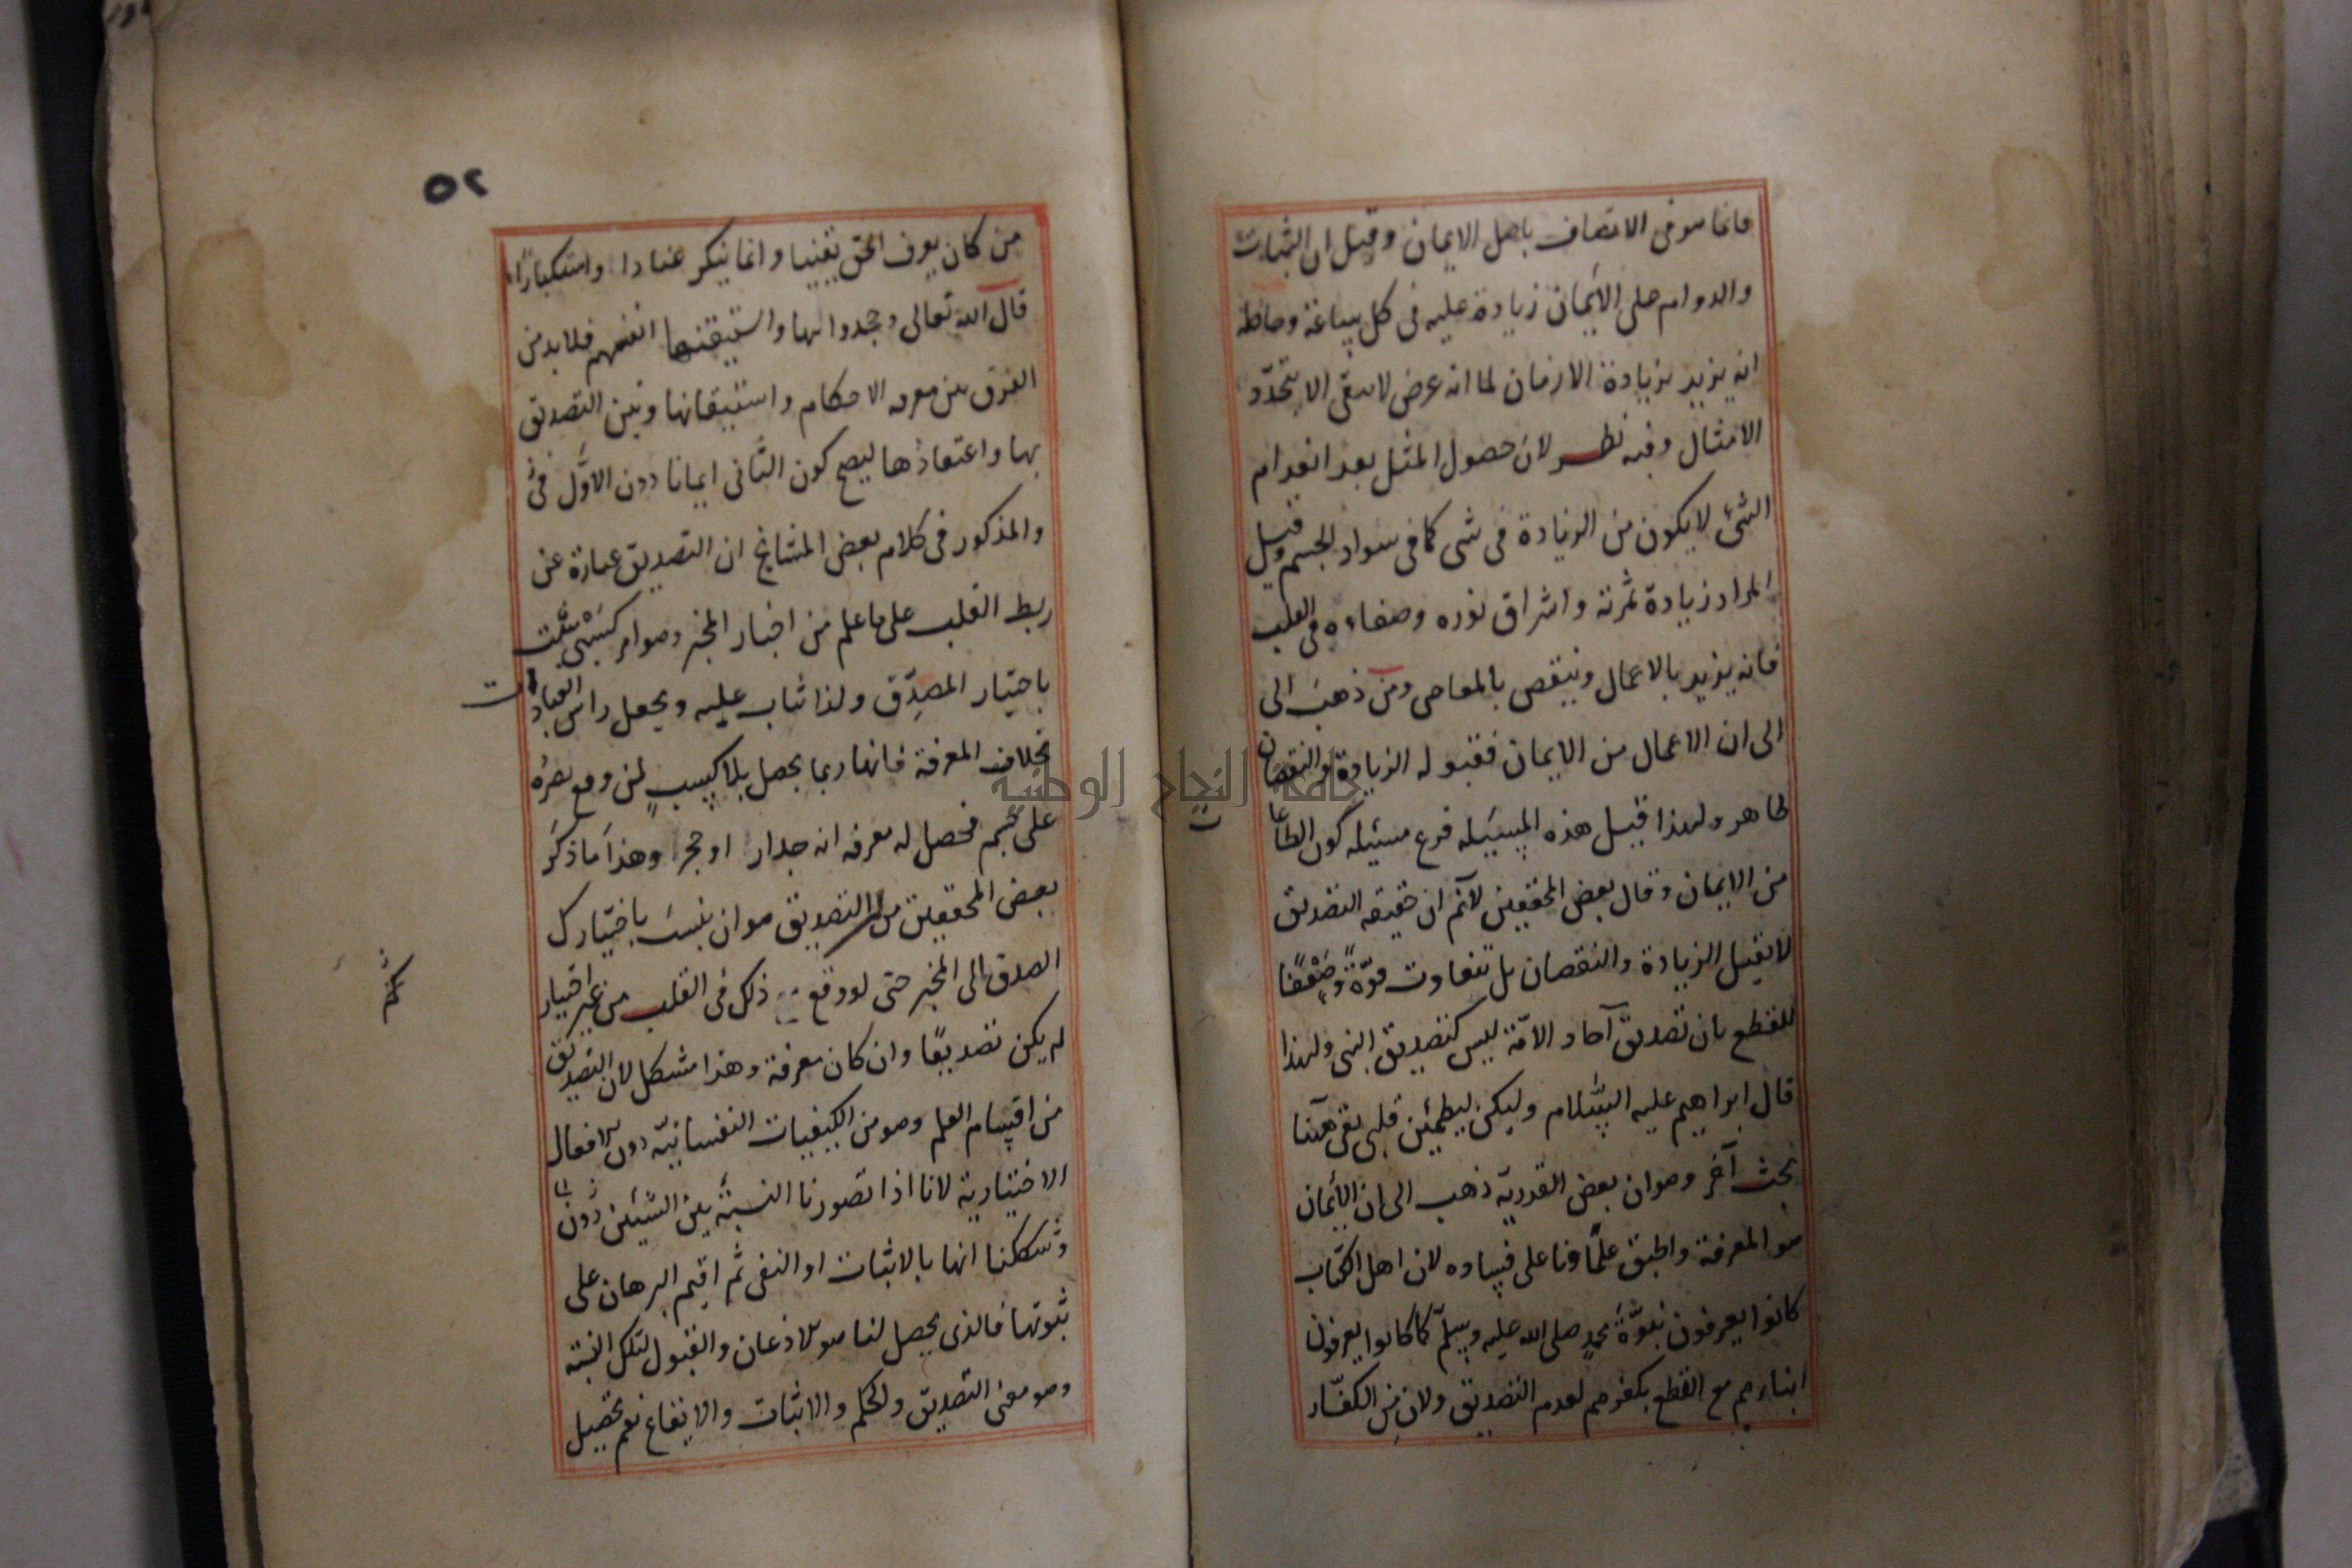 فانما هو فى الاتصاف باهل الايمان وقيل ان الثبات
والدوام على الايمان زيادة عليه فى كل ساعة وحاصله
انه يزيد بزيادة الازمان لما انه عرض لا يبقى الا بتجدّد
الامثال وفيه نظر لان حصول المثل بعد انعدام
الشئ لا يكون من الزيادة فى شى كما فى سواد الجسم وقيل
المراد زيادة ثمرته واشراق نوره وصفاءه فى القلب
فانه يزيد بالاعمال وينقص بالمعاصى ومن ذهب الى
الى ان الاعمال من الايمان فقبوله الزيادة والنقصان
ظاهر ولهذا قيل هذه المسئيله فرع مسئيله كون الطاعا
ت
من الايمان وقال بعض المحققين لانم ان حقيقه التصديق
لا تقبل الزيادة والنقصان بل تتفاوت قوّةً وضَعْفًا
للقطع بان تصديق آحاد الامّة ليس كتصديق النبى ولهذا
قال ابراهيم عليه السّلام وليكن ليطمئن قلبى بقى هٓهنا
بحث آخر وهو ان بعض القدريّه ذهب الى ان الايمان
هو المعرفة واطبق علمًاونا على فساده لان اهل الكتاب
كانوا يعرفون نبوّة محمدٍ صلى الله عليه وسلّم كما كانوا يعرفون
ابناءهم مع القطع بكفرهم لعدم التصديق ولان من الكفّار
٥٢
من كان يعرف الحق يقينيا وانما ينكر عنادا واستكبارًا
قال الله تعالى وجحدوا بها واستيقنها انفسهم فلا بد من
الفرق بين معرفه الاحكام واستيقانها وبين التصديق
بها واعتقادُها ليصح كون الثانى ايمانا دون الاوّل فى
والمذكور فى كلام بعض المشائخ ان التصديق عبارة عن
ربط القلب على ما علم من اخبار المخبر وهو امر كَسْبىّ يثبت
باختيار المصدِّق ولذا يثاب عليه ويجعل راس العبادات
بخلاف المعرفة فانها ربما يحصل بلا كسبٍ لمن وقع بصرُه
على جسم فحصل له معرفه انه جدار او حجر وهذا ما ذكر
بعض المحققين من ان التصديق هو ان ينسَب باختيارك
الصدق الى المخبر حتى لو وقع ذلك فى القلب من غير اختيار
لم يكن تصديقًا وان كان معرفة وهذا مشكل لان التصديق
من اقسام العلم وهو من الكيفيات النفسانيّه دون الافعال
الاختيارية لانا اذا تصورنا النسبة بين الشيئين
وشككنا انها بالاثبات او النفى ثم اقيم البرهان على
ثبوتها فالذى يحصل لنا هو الاذعان والقبول لتلك النسبة
وهو معنى التصديق ولحكم والاثبات والايقاع نعم تحصيل
جامعة النجاح الوطنية